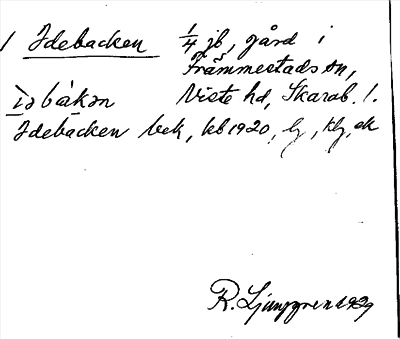 1 Idebacken 1/4 jb, gård i
Främmestads sn,
ìǝbákǝn Viste hd, Skarab. l.
Idebacken bek, kb 1920, lj, hlj, ek
R. Ljunggren 1929